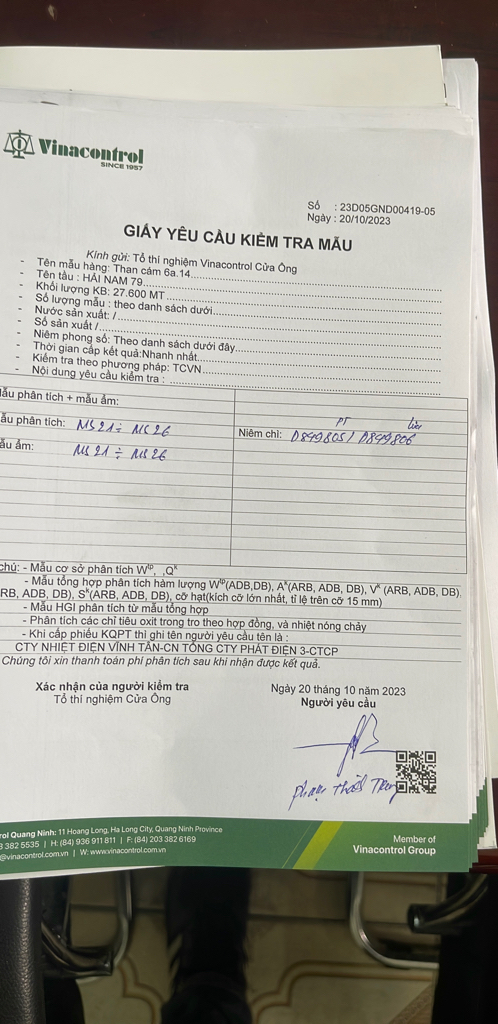 Vinacontrol
SINCE 1957
Số : 23D05GND00419-05
Ngày : 20/10/2023
GIẤY YÊU CẦU KIỂM TRA MẪU
Kính gửi: Tổ thí nghiệm Vinacontrol Cửa Ông
- Tên mẫu hàng: Than cám 6a.14
- Tên tàu : HẢI NAM 79
- Khối lượng KB: 27.600 MT
- Số lượng mẫu : theo danh sách dưới
- Nước sản xuất: /
- Số sản xuất /
- Niêm phong số: Theo danh sách dưới đây
- Thời gian cấp kết quả:Nhanh nhất
- Kiểm tra theo phương pháp: TCVN
- Nội dung yêu cầu kiểm tra :
ẫu phân tích + mẫu ẩm:
ẫu phân tích: MS 21 ÷ MS 26
PT lưu
Niêm chì: D899805 / D899806
ẫu ẩm: MS 21 ÷ MS 26
chú: - Mẫu cơ sở phân tích Wtp, ,Qk
- Mẫu tổng hợp phân tích hàm lượng Wtp(ADB,DB), Ak(ARB, ADB, DB), Vk (ARB, ADB, DB),
RB, ADB, DB), Sk(ARB, ADB, DB), cỡ hạt(kích cỡ lớn nhất, tỉ lệ trên cỡ 15 mm)
- Mẫu HGI phân tích từ mẫu tổng hợp
- Phân tích các chỉ tiêu oxit trong tro theo hợp đồng, và nhiệt nóng chảy
- Khi cấp phiếu KQPT thì ghi tên người yêu cầu tên là :
CTY NHIỆT ĐIỆN VĨNH TÂN-CN TỔNG CTY PHÁT ĐIỆN 3-CTCP
Chúng tôi xin thanh toán phí phân tích sau khi nhận được kết quả.
Xác nhận của người kiểm tra
Tổ thí nghiệm Cửa Ông
Ngày 20 tháng 10 năm 2023
Người yêu cầu
rol Quang Ninh: 11 Hoang Long, Ha Long City, Quang Ninh Province
3 382 5535 | H: (84) 936 911 811 | F: (84) 203 382 6169
@vinacontrol.com.vn | W: www.vinacontrol.com.vn
Member of
Vinacontrol Group